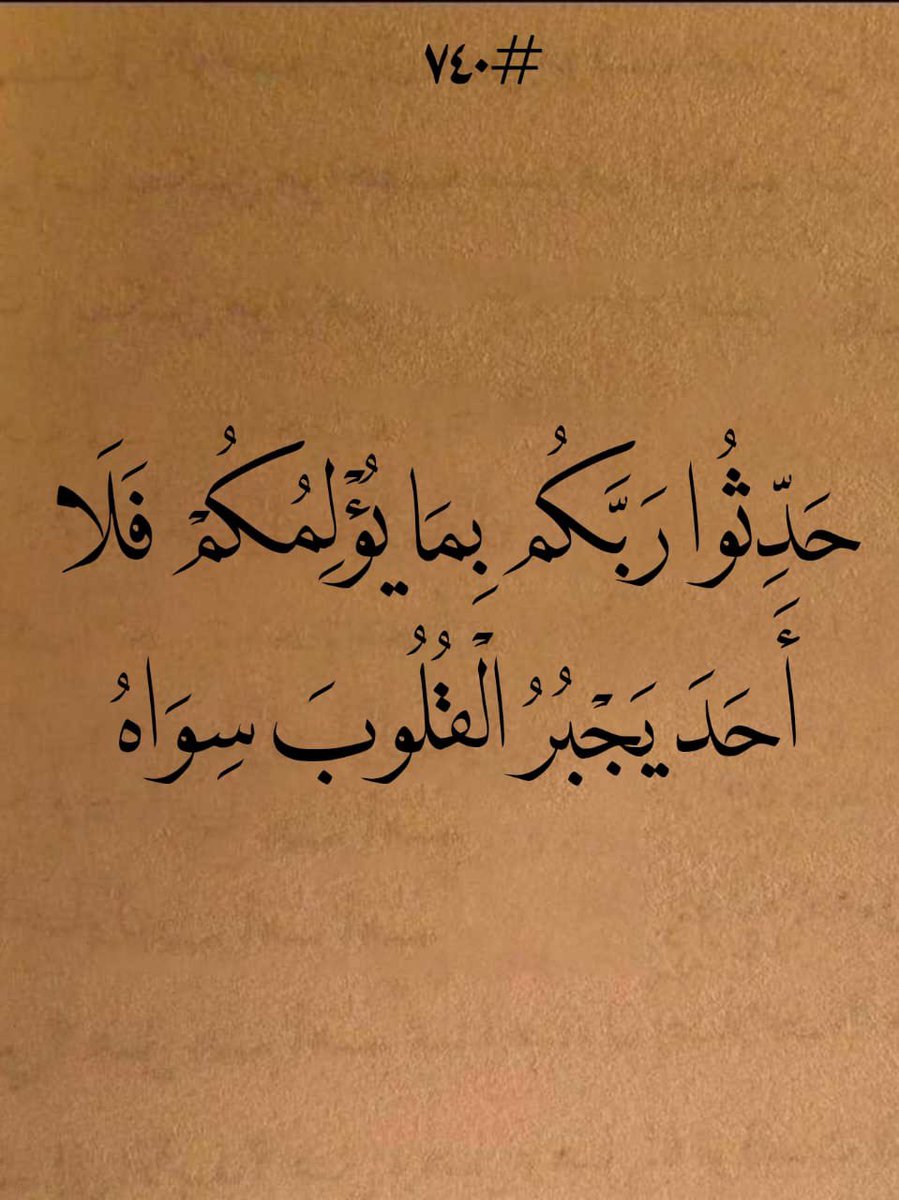 #٧٤٠
حَدِّثُوا رَبَّكُم بِمَا يُؤْلِمُكُمْ فَلَا
أَحَدَ يَجْبُرُ الْقُلُوبَ سِوَاهُ